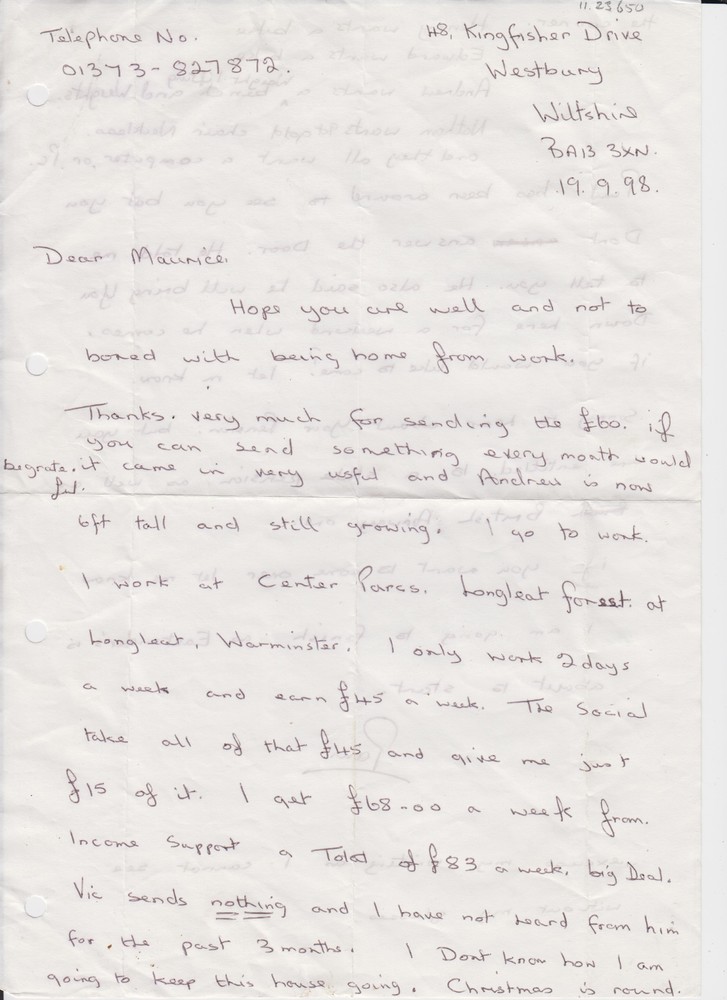 11.23650
Telephone No.
01373-827872.
48, Kingfisher Drive
Westbury
Wiltshire
BA13 3XN.
19.9.98.
Dear Maurice,
Hope you are well and not to
bored with being home from work.
Thanks. very much for sending the £60. if
you can send something every month would
be grate. it came in very usful and Andrew is now
ful.
6ft tall and still growing. I go to work.
I work at Center Parcs. Longleat forest. at
Longleat, Warminster. I only work 2 days
a week and earn £45 a week. The Social
take all of that £45 and give me just
£15 of it. I get £68-00 a week from.
Income Support a Total of £83 a week, big Deal.
Vic sends nothing and I have not heard from him
for the past 3 months. I Dont know how I am
going to keep this house going. Christmas is round.